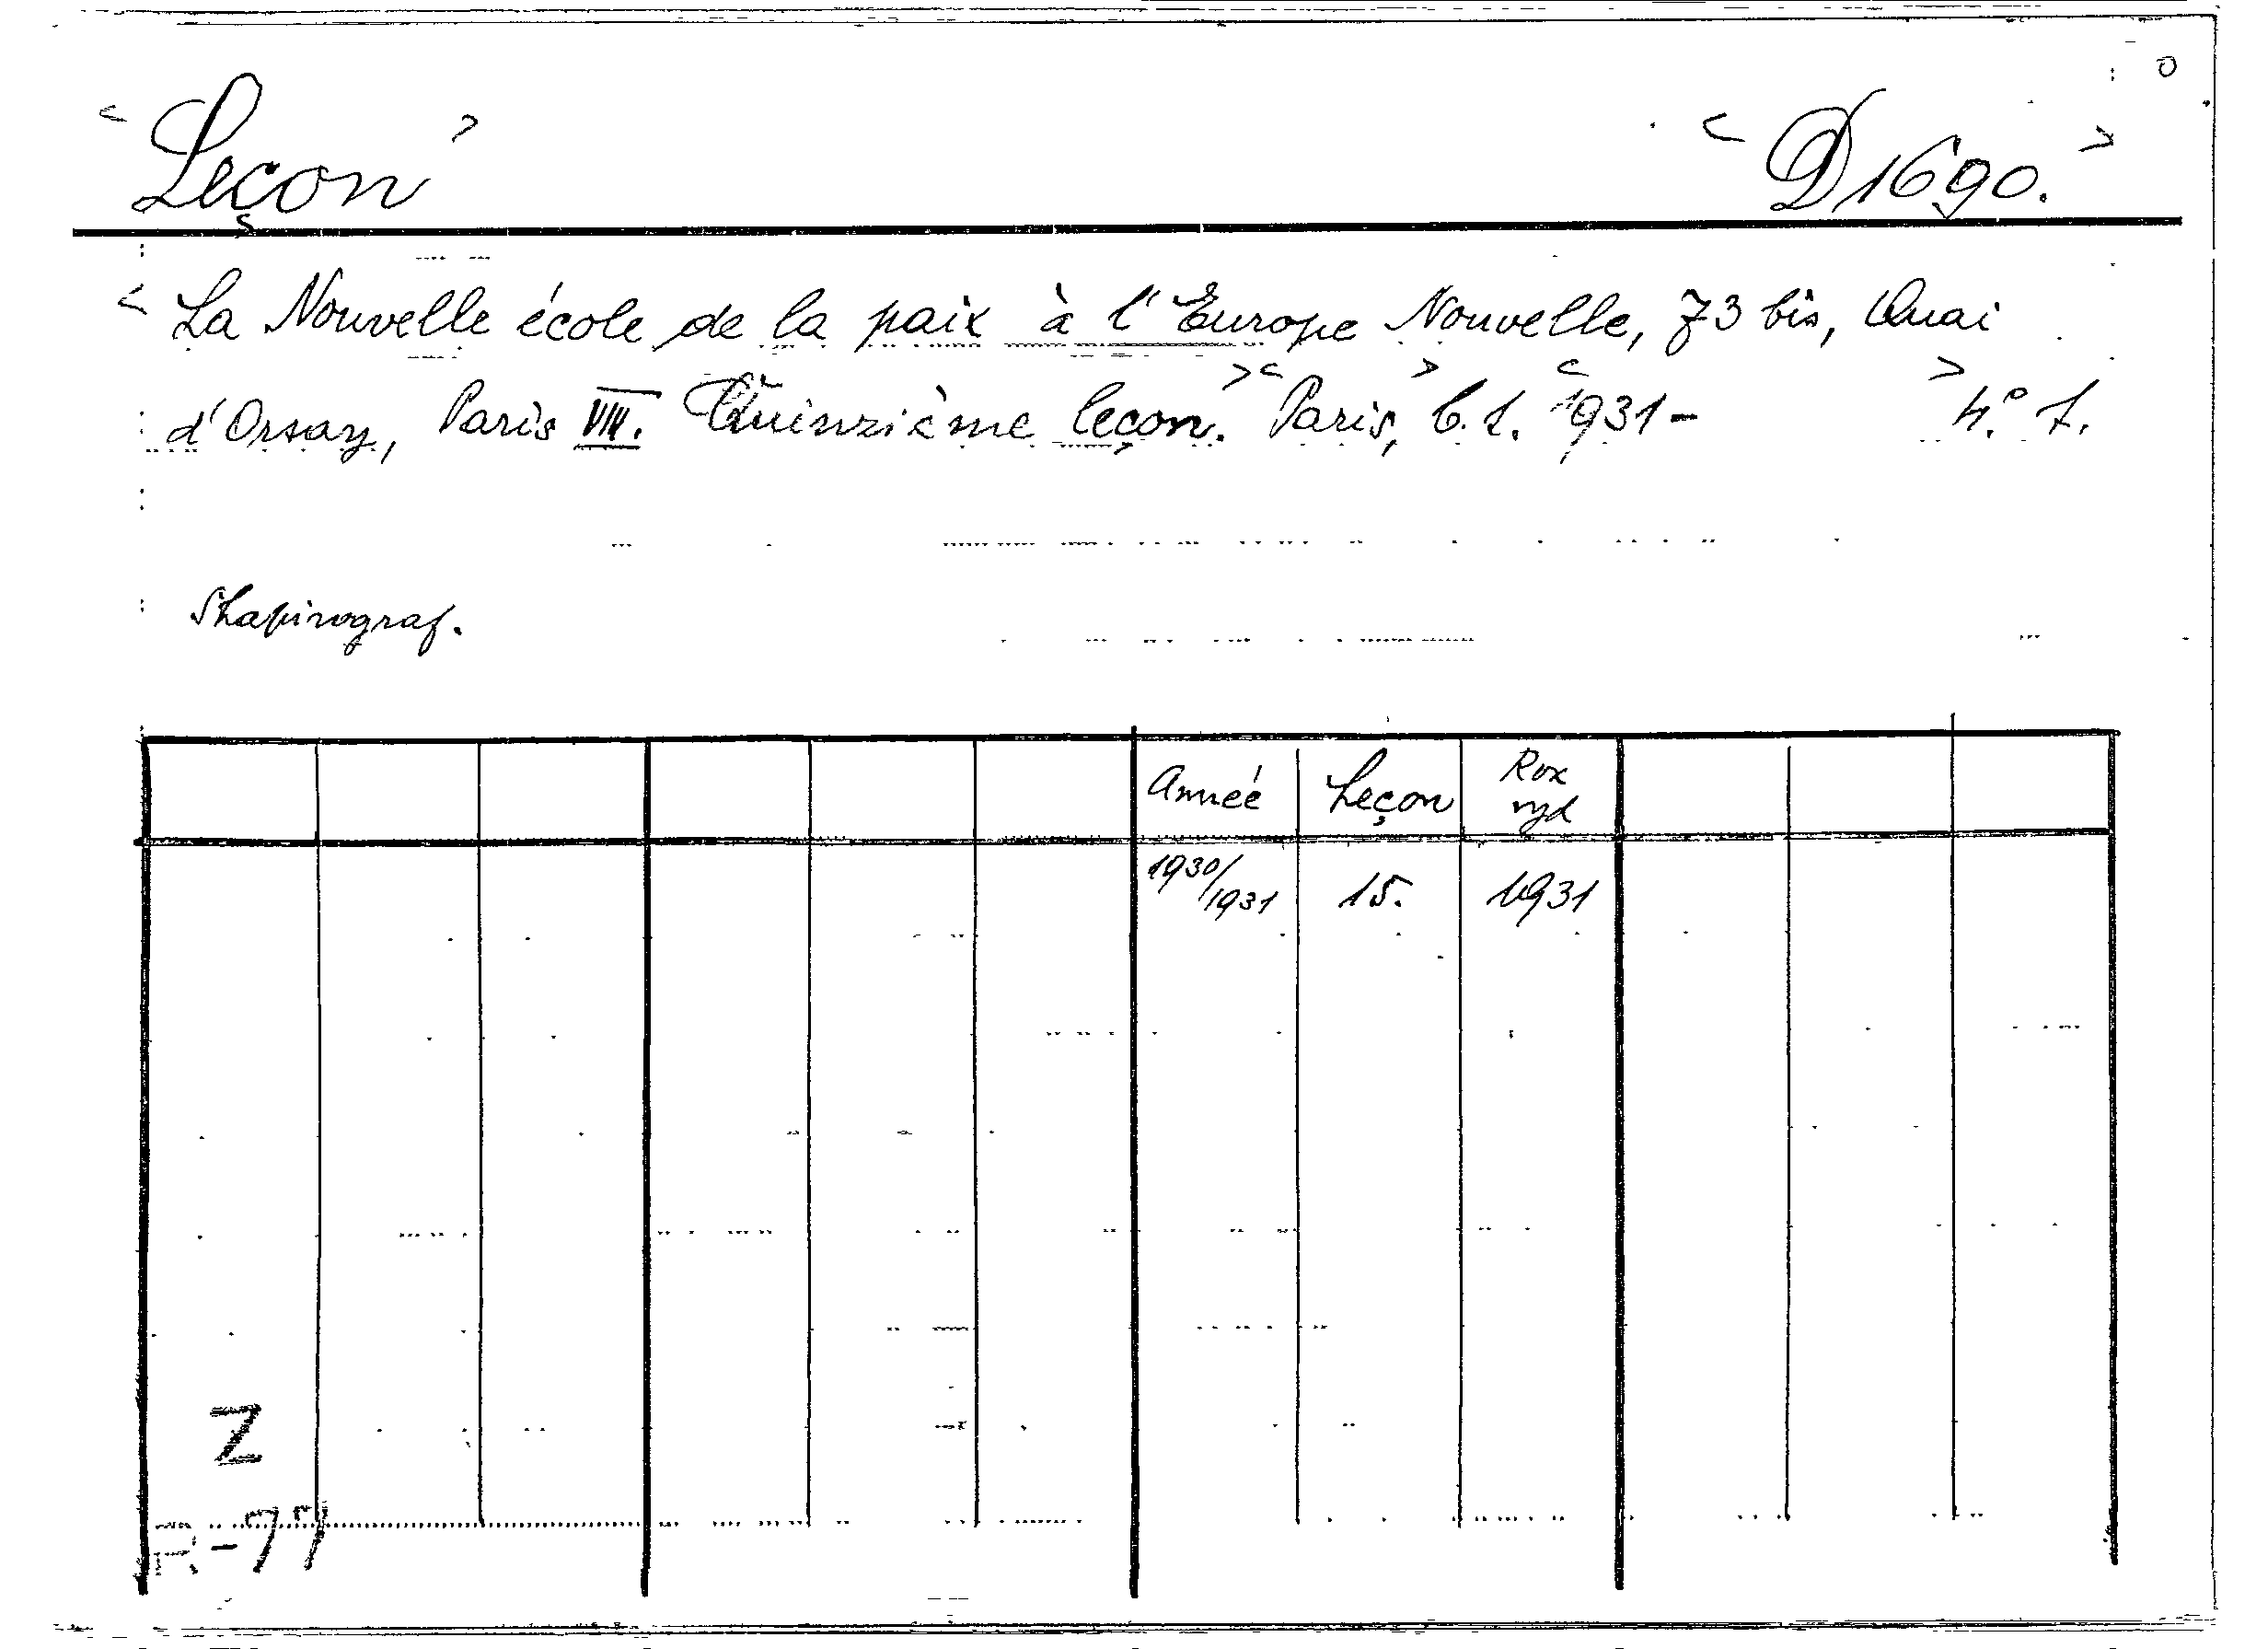 < Leçon > < D 1690. >
< La Nouvelle école de la paix à l'Europe Nouvelle, 73 bis, Quai
d'Orsay, Paris VIII. Quinzième leçon. > < Paris, > b. t. < 1931- > 4.° f.
Shapirograf.
Anneé Leçon Rox wyd
1930/1931 15. 1931
Z
R-77